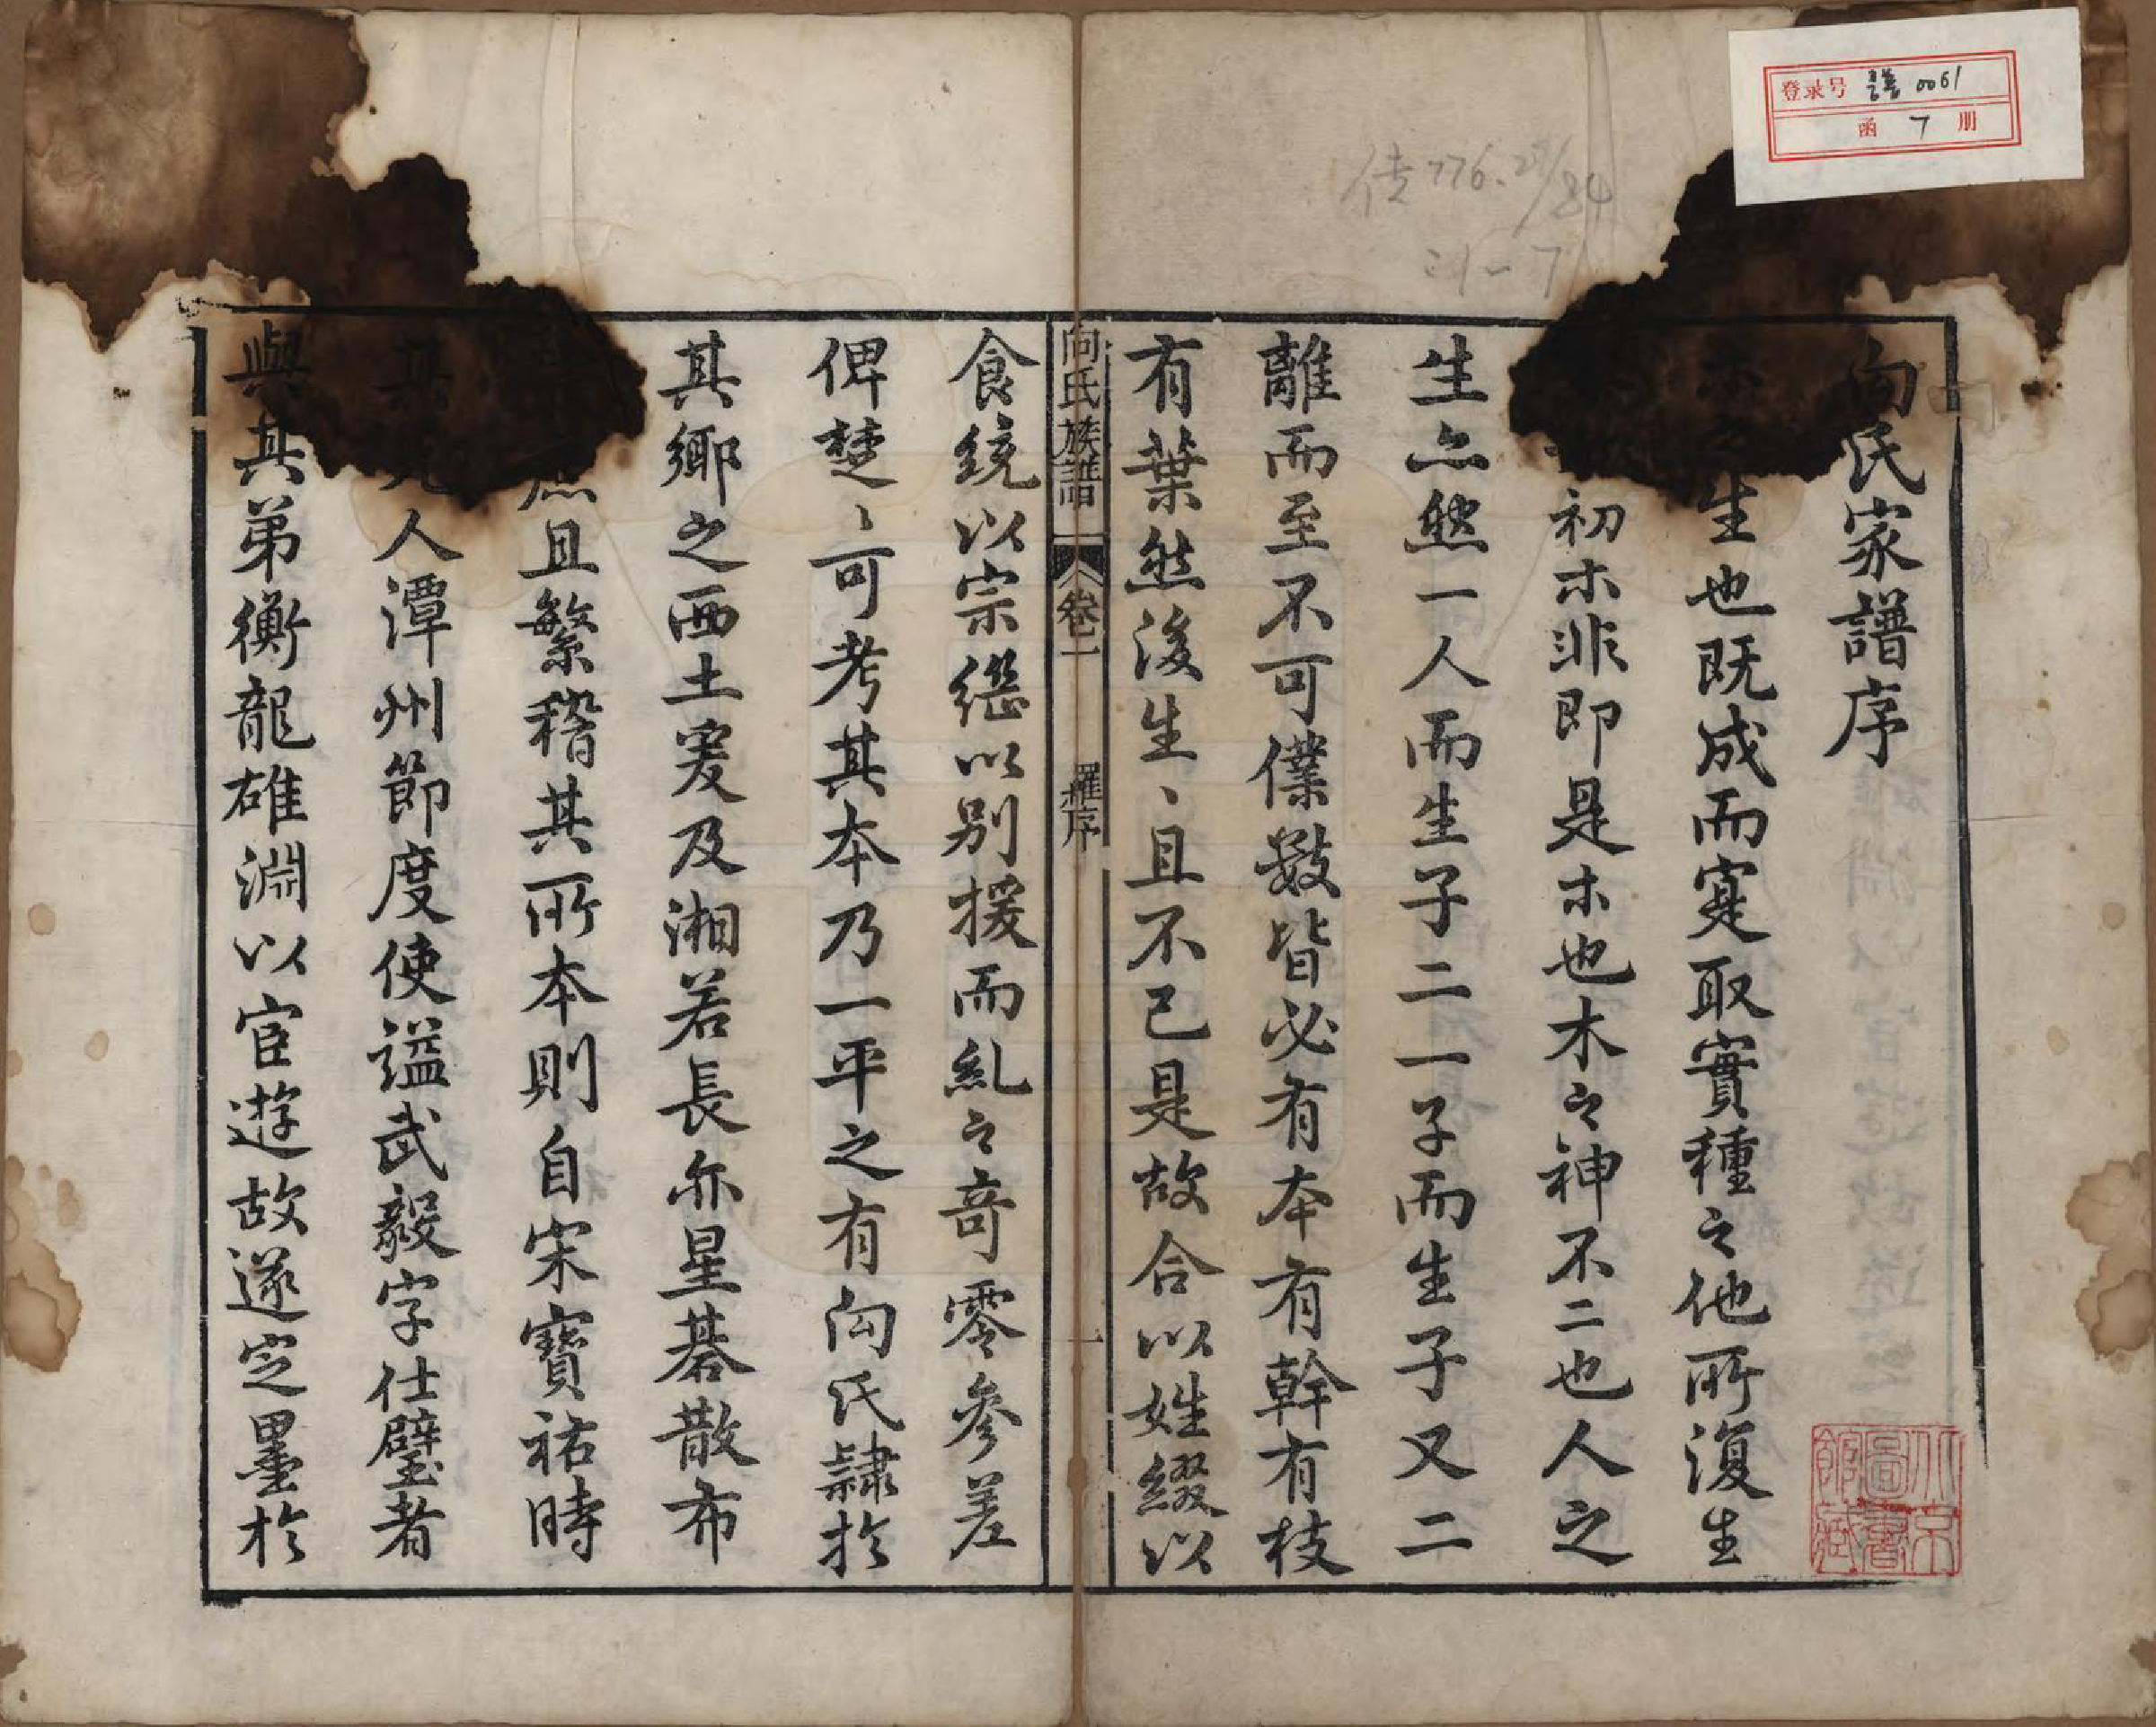 向氏家譜序
木之生也既成而寔取實種之他所復生
初木非即是木也木之神不二也人之
生亦然一人而生子二一子而生子又二
離而至不可僕數皆必有本有幹有枝
有葉然後生、且不已是故合以姓綴以
向氏族譜 卷一 羅序 一
食統以宗繼以別援而糺之奇零參差
俾楚、可考其本乃一平之有向氏隸於
其鄉之西土爰及湘若長亦星碁散布
庶且繁稽其所本則自宋寶祐時
其先人潭州節度使謚武毅字仕璧者
與其弟衡龍雄淵以宦遊故遂定墨於
登录号 善 0061
函 7 册
传776.28/84
:1-7
北京圖書館藏